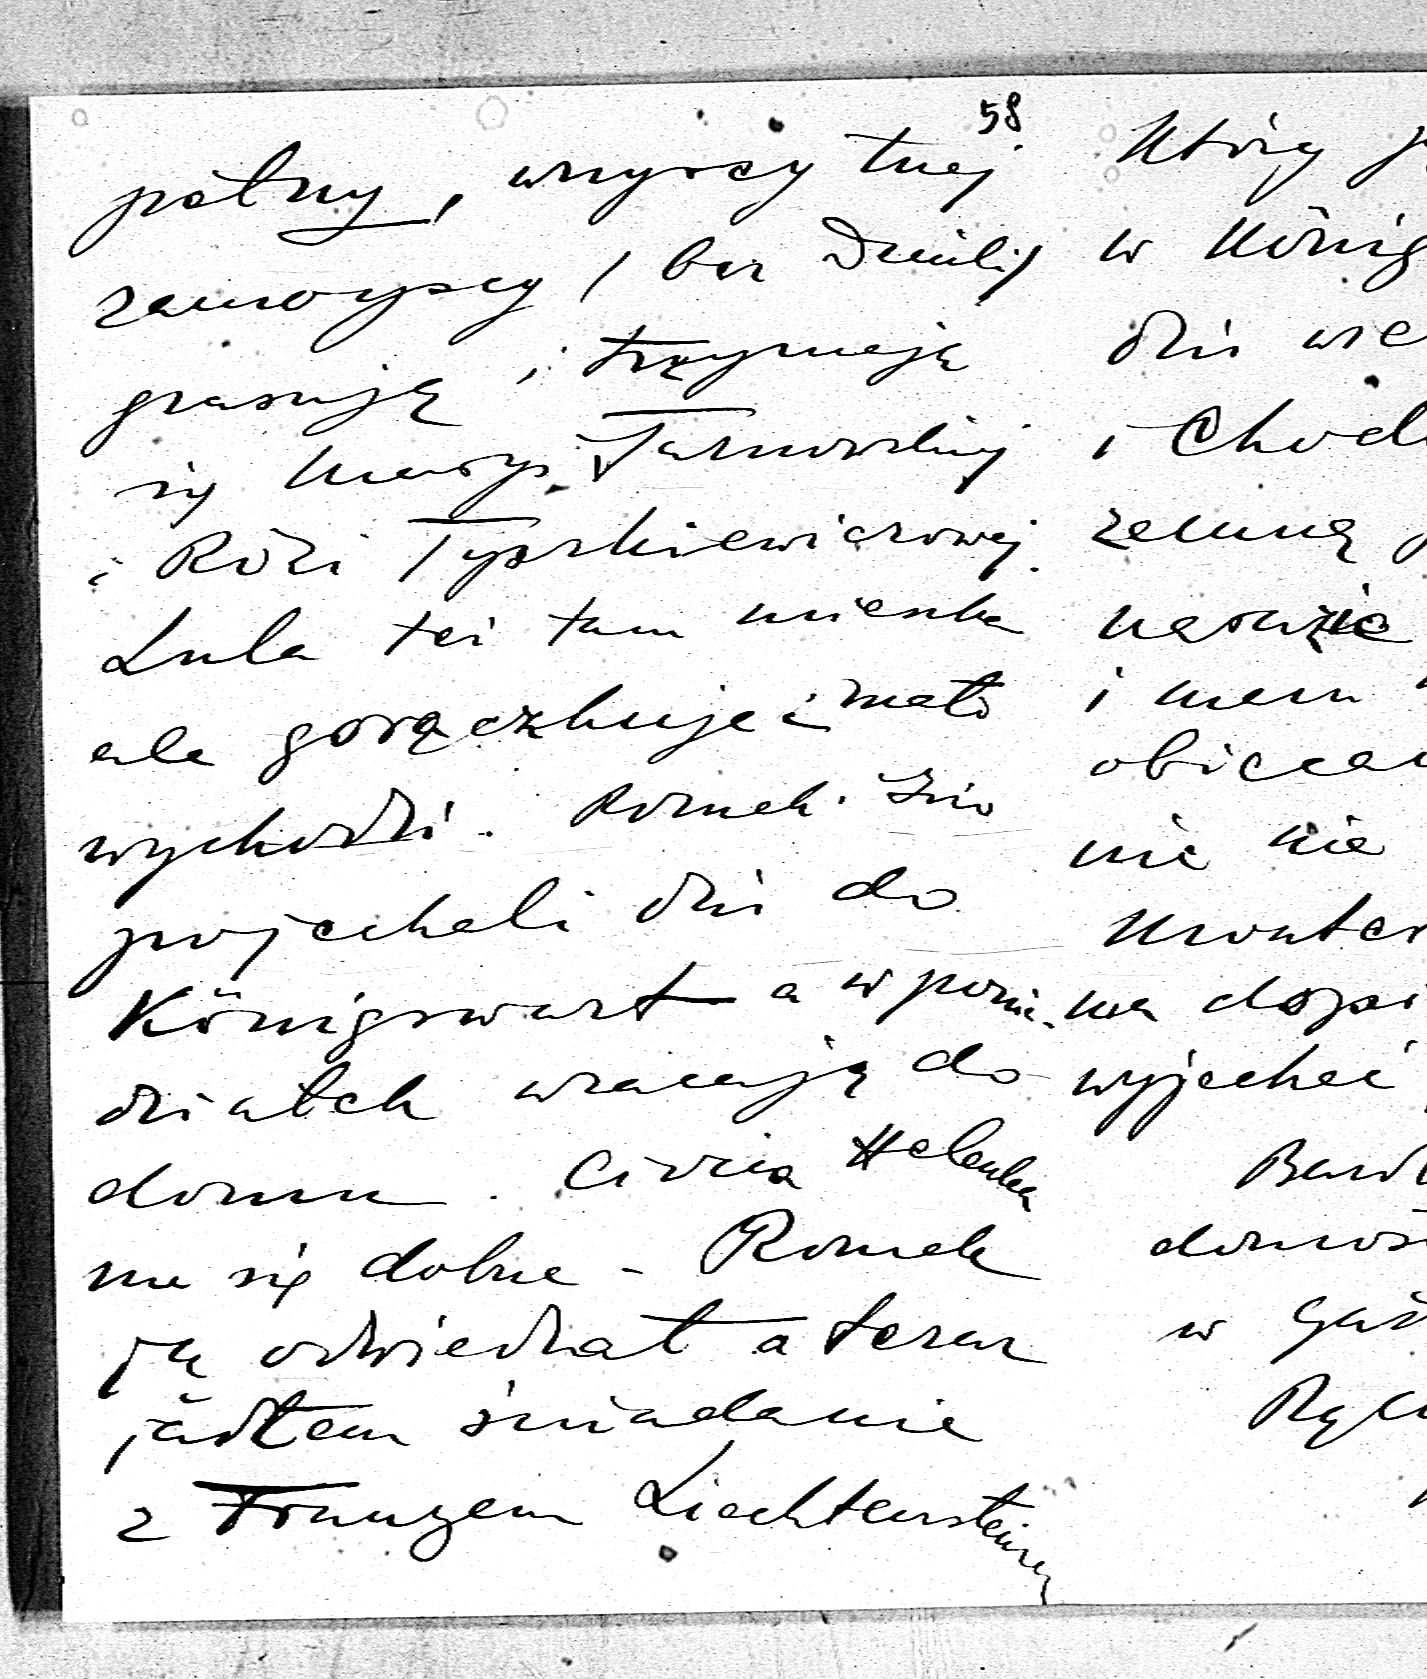 58
pełny, wszyscy tuej
zamoyscy (bez Dzulis)
grasują i trzymają
się Marysi Tarnowskiej
i Rózi Tyszkiewiczowej.
Lula też tam mieszka
ale gorączkuje i mało
wychodzi. Romek i
pojechali dziś do
Königswart a w ponie-
działek wracają do
domu. Ciocia Helenka
ma się dobrze - Romek
ją odwiedzał a teraz
jadłem śniadanie
z Franzem Liechtensteinem
Który
w König
dziś
i Chod
zemną
narazie
i mam
obiecał
nie nie
na
wyjechać
w